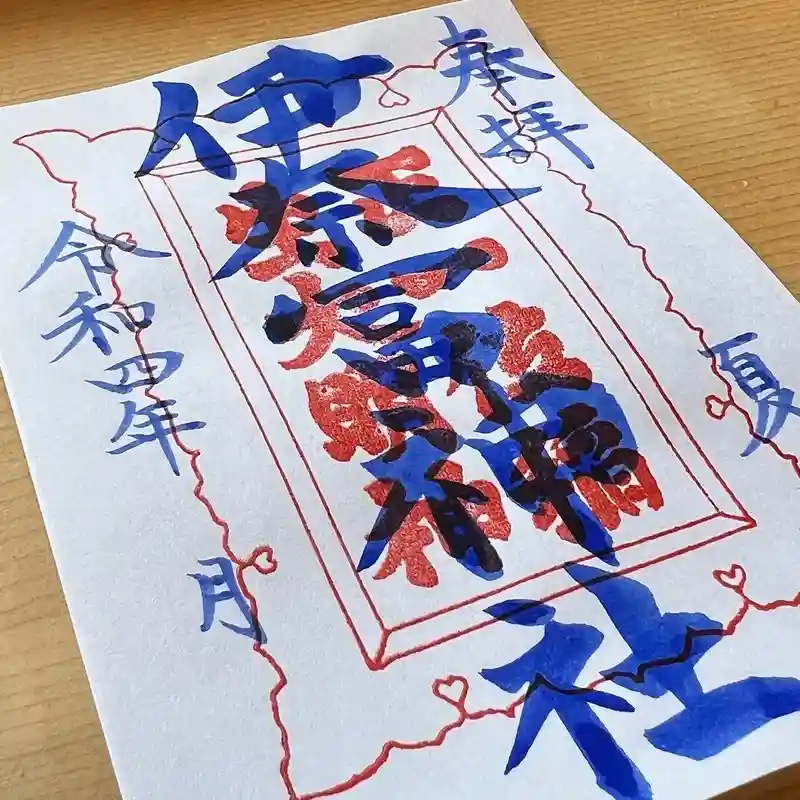 奉拝
夏
伊奈冨神社
令和四年 月